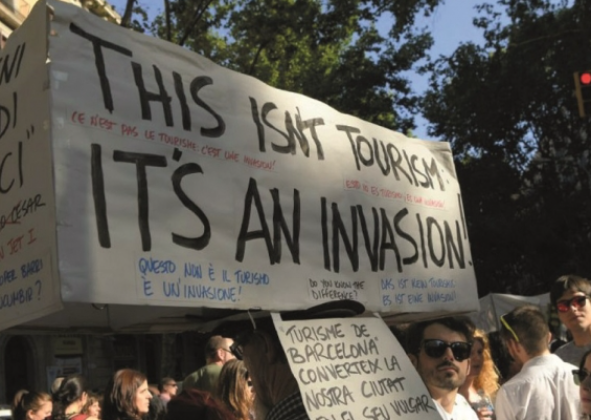 THIS ISN'T TOURISM.
CE N'EST PAS LE TOURISME: C'EST UNE INVASION!
IT'S AN INVASION!
QUESTO NON È IL TURISMO
È UN'INVASIONE!
DO YOU KNOW THE
DIFFERENCE?
DAS IST KEIN TOURISMUS
ES IST EINE INVASION!
TURISME DE
BARCELONA
CONVERTEIX LA
NOSTRA CIUTAT
EN EL SEU VULGAR